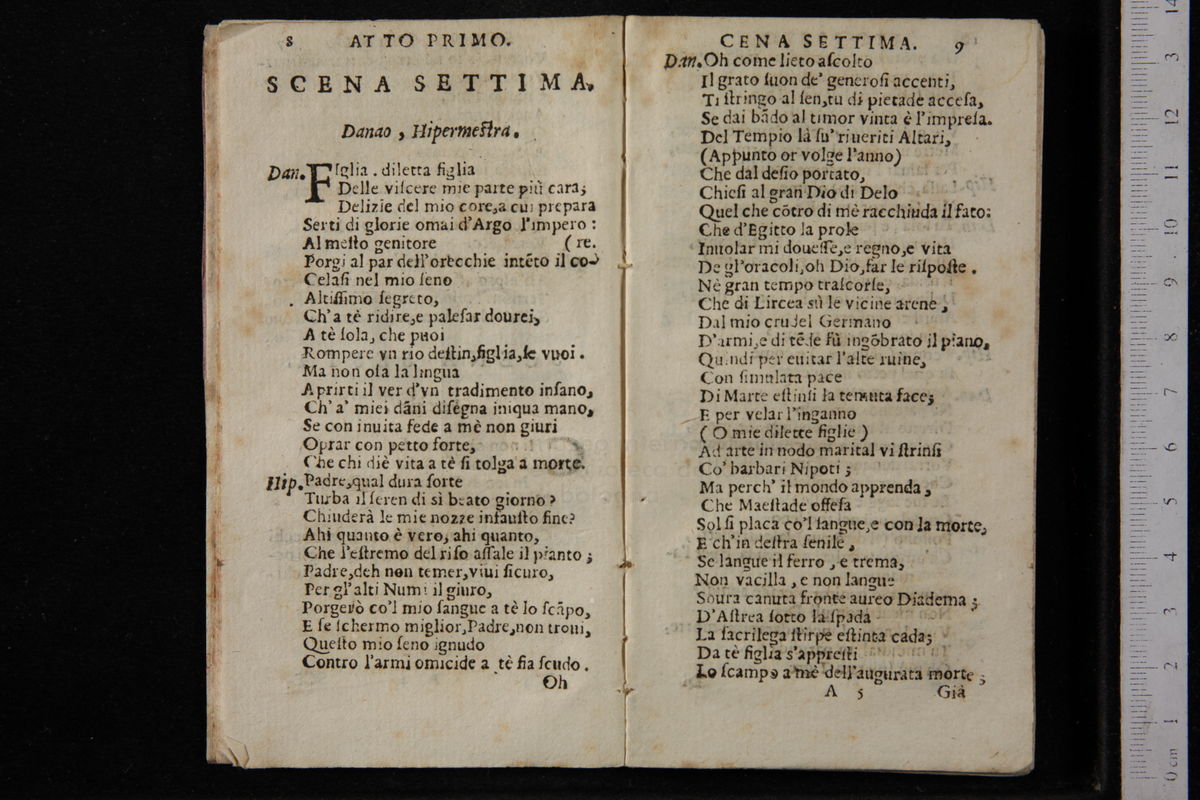 8 ATTO PRIMO.
SCENA SETTIMA,
Danao, Hipermestra.
Dan. FIglia . diletta figlia
Delle viſcere mie parte più cara;
Delizie del mio core, a cui prepara
Serti di glorie omai d'Argo l'impero :
Al meſto genitore (re.
Porgi al par dell'orecchie intēto il co-
Celaſi nel mio ſeno
Altiſſimo ſegreto,
Ch'a tè ridire, e paleſar dourei,
A tè ſola, che puoi
Rompere vn rio deſtin, figlia, ſe vuoi.
Ma non oſa la lingua
Aprirti il ver d'vn tradimento inſano,
Ch' a' miei dāni diſegna iniqua mano,
Se con inuita fede a mè non giuri
Oprar con petto forte,
Che chi diè vita a tè ſi tolga a morte.
Hip. Padre, qual dura ſorte
Turba il ſeren di sì beato giorno ?
Chiuderà le mie nozze infauſto fine?
Ahi quanto è vero, ahi quanto,
Che l'eſtremo del riſo aſſale il pianto ;
Padre, deh non temer, viui ſicuro,
Per gl'alti Numi il giuro,
Porgerò co'l mio ſangue a tè lo ſcāpo,
E ſe ſchermo miglior, Padre, non troui,
Queſto mio ſeno ignudo
Contro l'armi omicide a tè ſia ſcudo.
Oh
CENA SETTIMA. 9
Dan. Oh come lieto aſcolto
Il grato ſuon de' generoſi accenti,
Ti ſtringo al ſen, tu di pietade acceſa,
Se dai bādo al timor vinta è l'impreſa.
Del Tempio là ſu' riueriti Altari,
(Appunto or volge l'anno)
Che dal deſio portato,
Chieſi al gran Dio di Delo
Quel che cōtro di mè racchiuda il fato:
Che d'Egitto la prole
Inuolar mi doueſſe, e regno, e vita
De gl'oracoli, oh Dio, far le riſpoſte.
Nè gran tempo traſcorſe,
Che di Lircea sù le vicine arene,
Dal mio crudel Germano
D'armi, e di tēde fù ingōbrato il piano,
Quindi per euitar l'alte ruine,
Con ſimulata pace
Di Marte eſtinſi la temuta face;
E per velar l'inganno
( O mie dilette figlie )
Ad arte in nodo marital vi ſtrinſi
Co' barbari Nipoti ;
Ma perch' il mondo apprenda,
Che Maeſtade offeſa
Sol ſi placa co'l ſangue, e con la morte,
E ch'in deſtra ſenile,
Se langue il ferro, e trema,
Non vacilla, e non langue
Soura canuta fronte aureo Diadema ;
D'Aſtrea ſotto la ſpada
La ſacrilega ſtirpe eſtinta cada;
Da tè figlia s'appreſti
Lo ſcampo a mè dell'augurata morte ;
A 5 Già